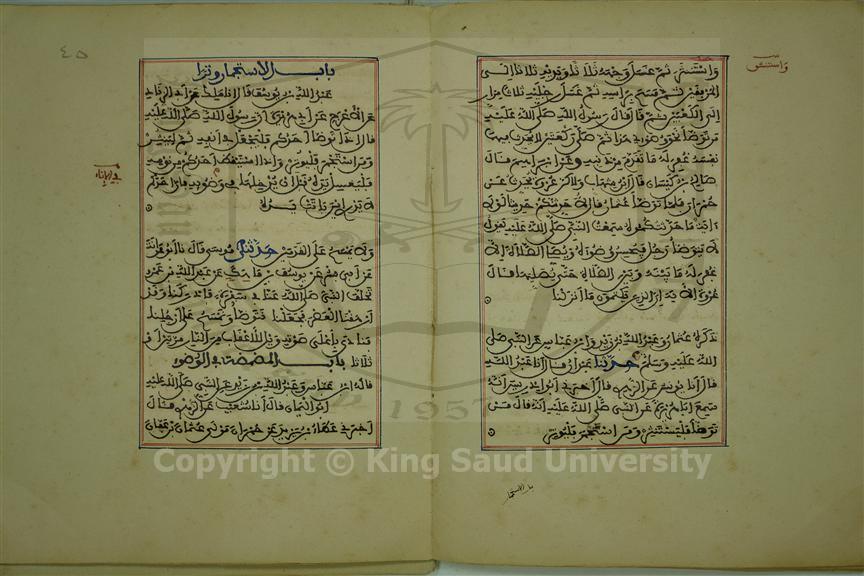 واستنثر ثم غسل وجهه ثلاثا ويديه ثلاثا إلى
المرفقين ثم مسح براسه ثم غسل رجليه ثلاث مرار
إلى الكعبين ثم قال قال رسول الله صلى الله عليه
من توضأ نحو وضوءي هذا ثم صلى ركعتين لا يحدث فيهما
نفسه غفر له ما تقدم من ذنبه وعن ابراهيم قال
صالح بن كيسان قال ابن شهاب ولاكن عروة يحدث عن
حمران فلما توضأ عثمان قال الا احدثكم حديثا لولا
اية ما حدثتكموه سمعت النبي صلى الله عليه يقول
لا يتوضأ رجل فيحسن وضوءه ويصلي الصلاة الا
غفر له ما بينه وبين الصلاة حتى يصليها قال
عروة الاية ان الذين يكتمون ما انزلنا
ذكره عثمان وعبد الله بن زيد وابن عباس عن النبي صلى
الله عليه وسلم حدثنا عبدان قال انا عبد الله
قال انا يونس عن الزهري قال اخبرني ابو ادريس انه
سمع ابا هريرة عن النبي صلى الله عليه انه قال من
توضأ فليستنثر ومن استجمر فليوتر
واستنشق
باب الاستجمار
٤٥
باب الاستجمار وترا
عبد الله بن يوسف قال انا ملك عن ابي الزناد
عن الاعرج عن ابي هريرة ان رسول الله صلى الله عليه
قال اذا توضأ احدكم فليجعل في انفه ثم لينثر
ومن استجمر فليوتر واذا استيقظ احدكم من نومه
فليغسل يده قبل ان يدخلها في وضوءه فان احدكم
لا يدري اين باتت يده
في الاناء
ولا يمسح على القدمين حدثني موسى قال نا ابو عوانة
عن ابي بشر عن يوسف بن ماهك عن عبد الله بن عمرو
تخلف النبي صلى الله عنا في سفرة فادركنا وقد
ارهقنا العصر فجعلنا نتوضأ ونمسح على ارجلنا
فنادى باعلى صوته ويل للاعقاب من النار مرتين او
ثلاثا باب المضمضة في الوضوء
قاله ابن عباس وعبد الله بن زيد عن النبي صلى الله عليه
ابو اليمان قال انا شعيب عن الزهري قال
اخبرني عطاء بن يزيد عن حمران مولى عثمان بن عفان
Copyright © King Saud University
1957